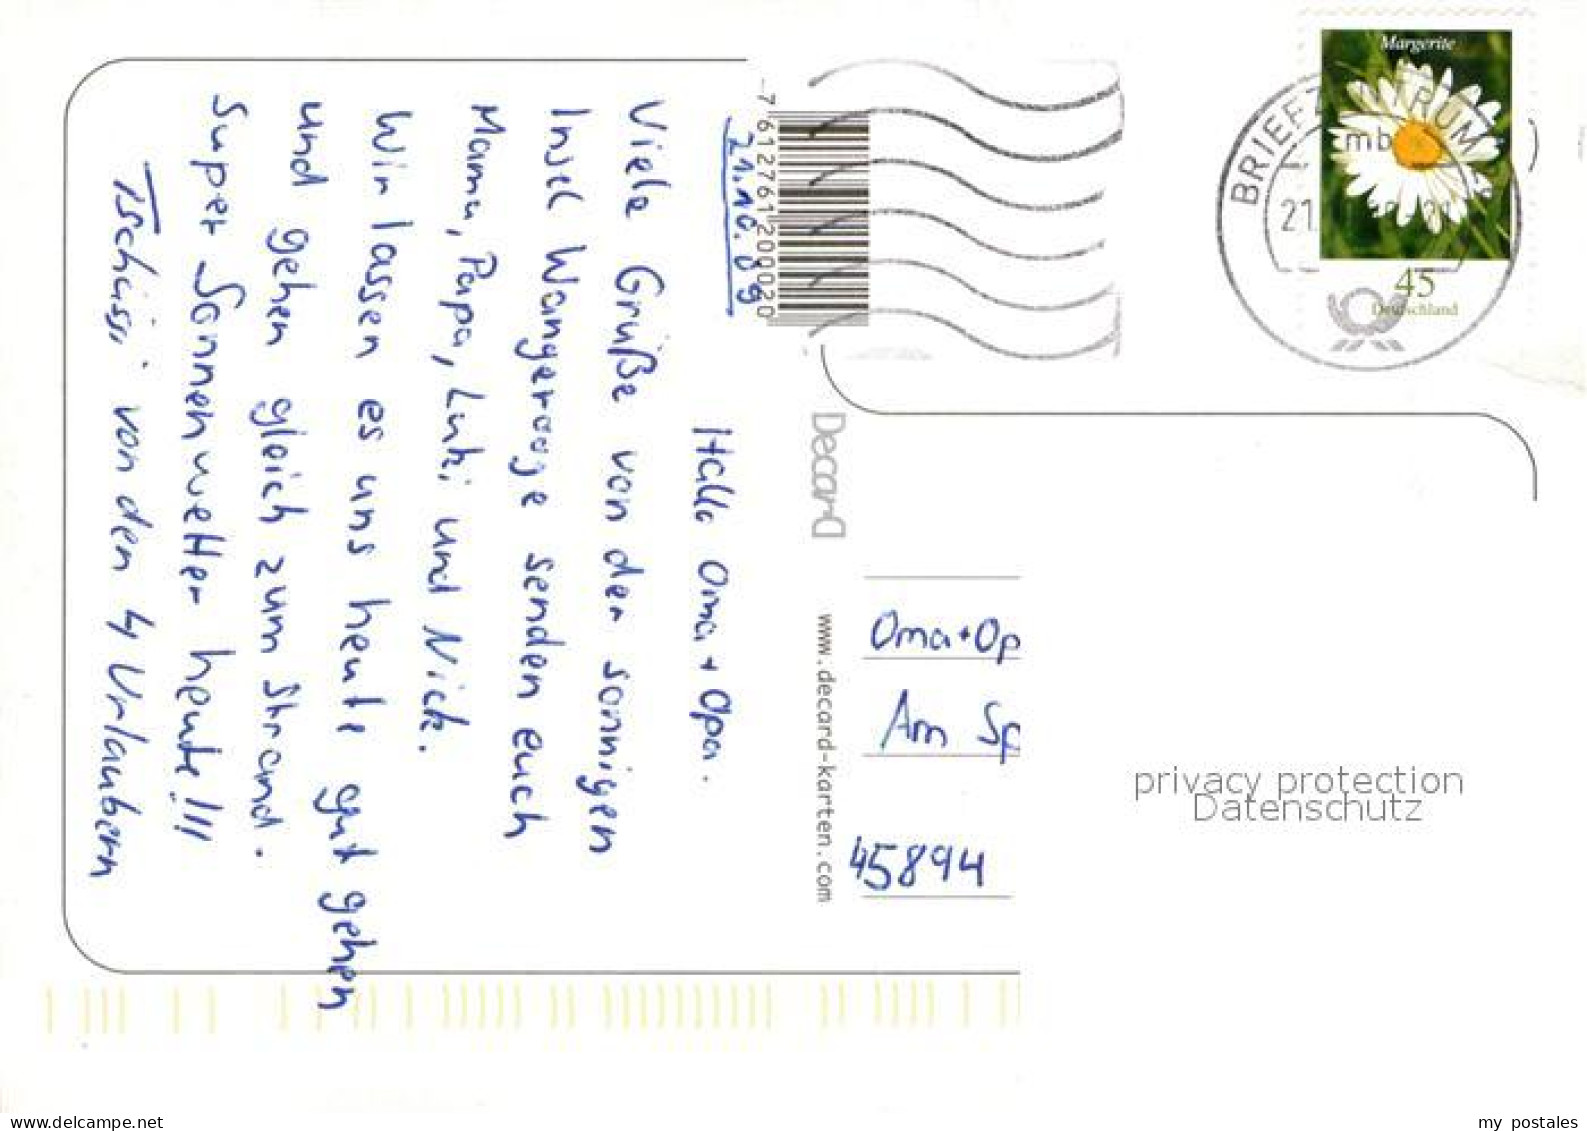 21.10.09
Hallo Oma + Opa.
Viele Grüße von der sonnigen
Insel Wangerooge senden euch
Mama, Papa, Luki und Nick.
Wir lassen es uns heute gut gehen
und gehen gleich zum Strand.
Super Sonnenwetter heute!!!
Tschüssi von den 4 Urlaubern
7612761200020
Decard
www.decard-karten.com
Margerite
45
Deutschland
BRIEFZENTRUM
mb
21.
Oma + Op
Am Sp
45894
privacy protection
Datenschutz
www.delcampe.net
my postales